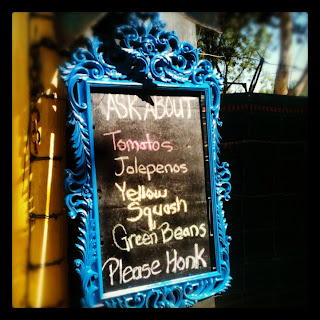 ASK ABOUT
Tomatos
Jalepenos
Yellow
Squash
Green Beans
Please Honk